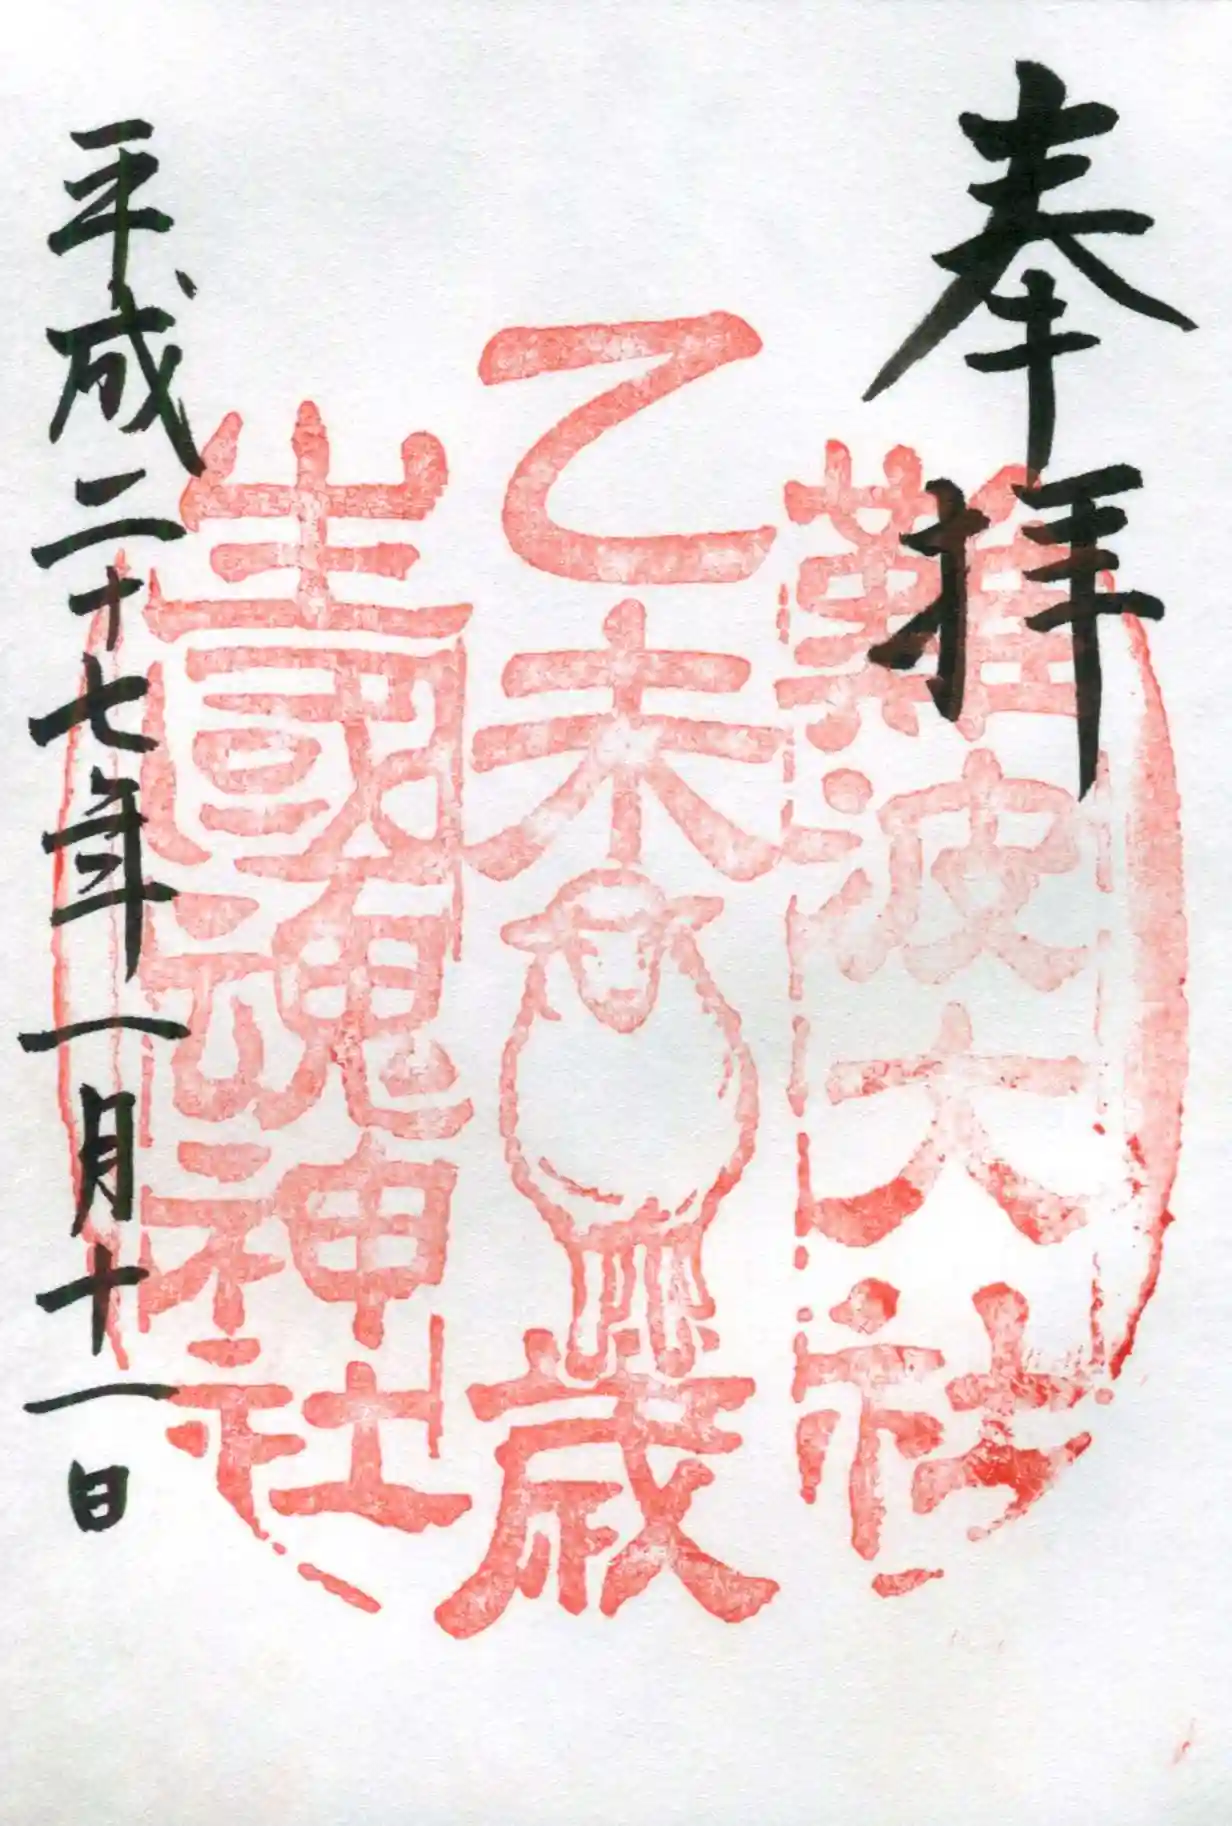 奉拝
難波大社
乙未歳
生國魂神社
平成二十七年一月十一日